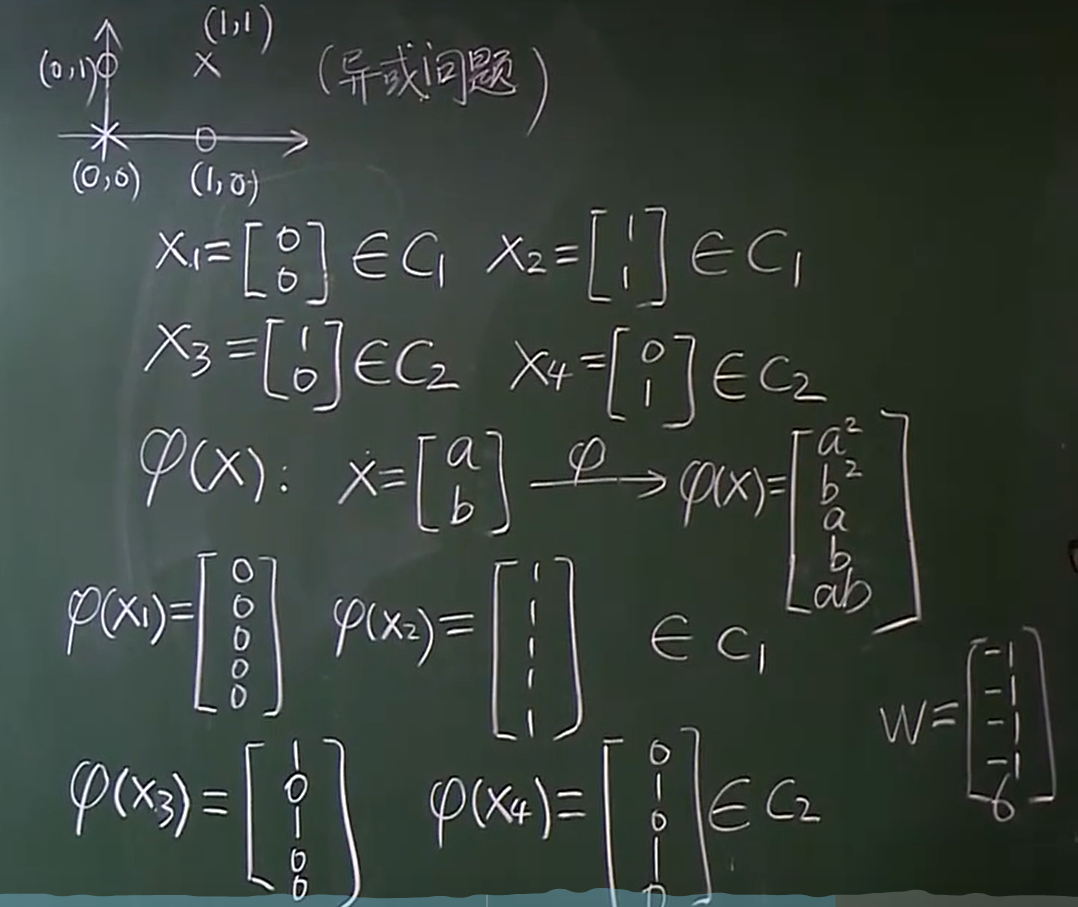 (1,1)
(0,1)
(异或问题)
(0,0) (1,0)
X₁=[0 0] ∈ C₁ X₂=[1 1] ∈ C₁
X₃=[1 0] ∈ C₂ X₄=[0 1] ∈ C₂
φ(X): X=[a b] —φ→ φ(X)=[a² b² a b ab]
φ(X₁)=[0 0 0 0 0] φ(X₂)=[1 1 1 1 1] ∈ C₁
W=[-1 -1 -1 -1 6]
φ(X₃)=[1 0 1 0 0] φ(X₄)=[0 1 0 1 0] ∈ C₂